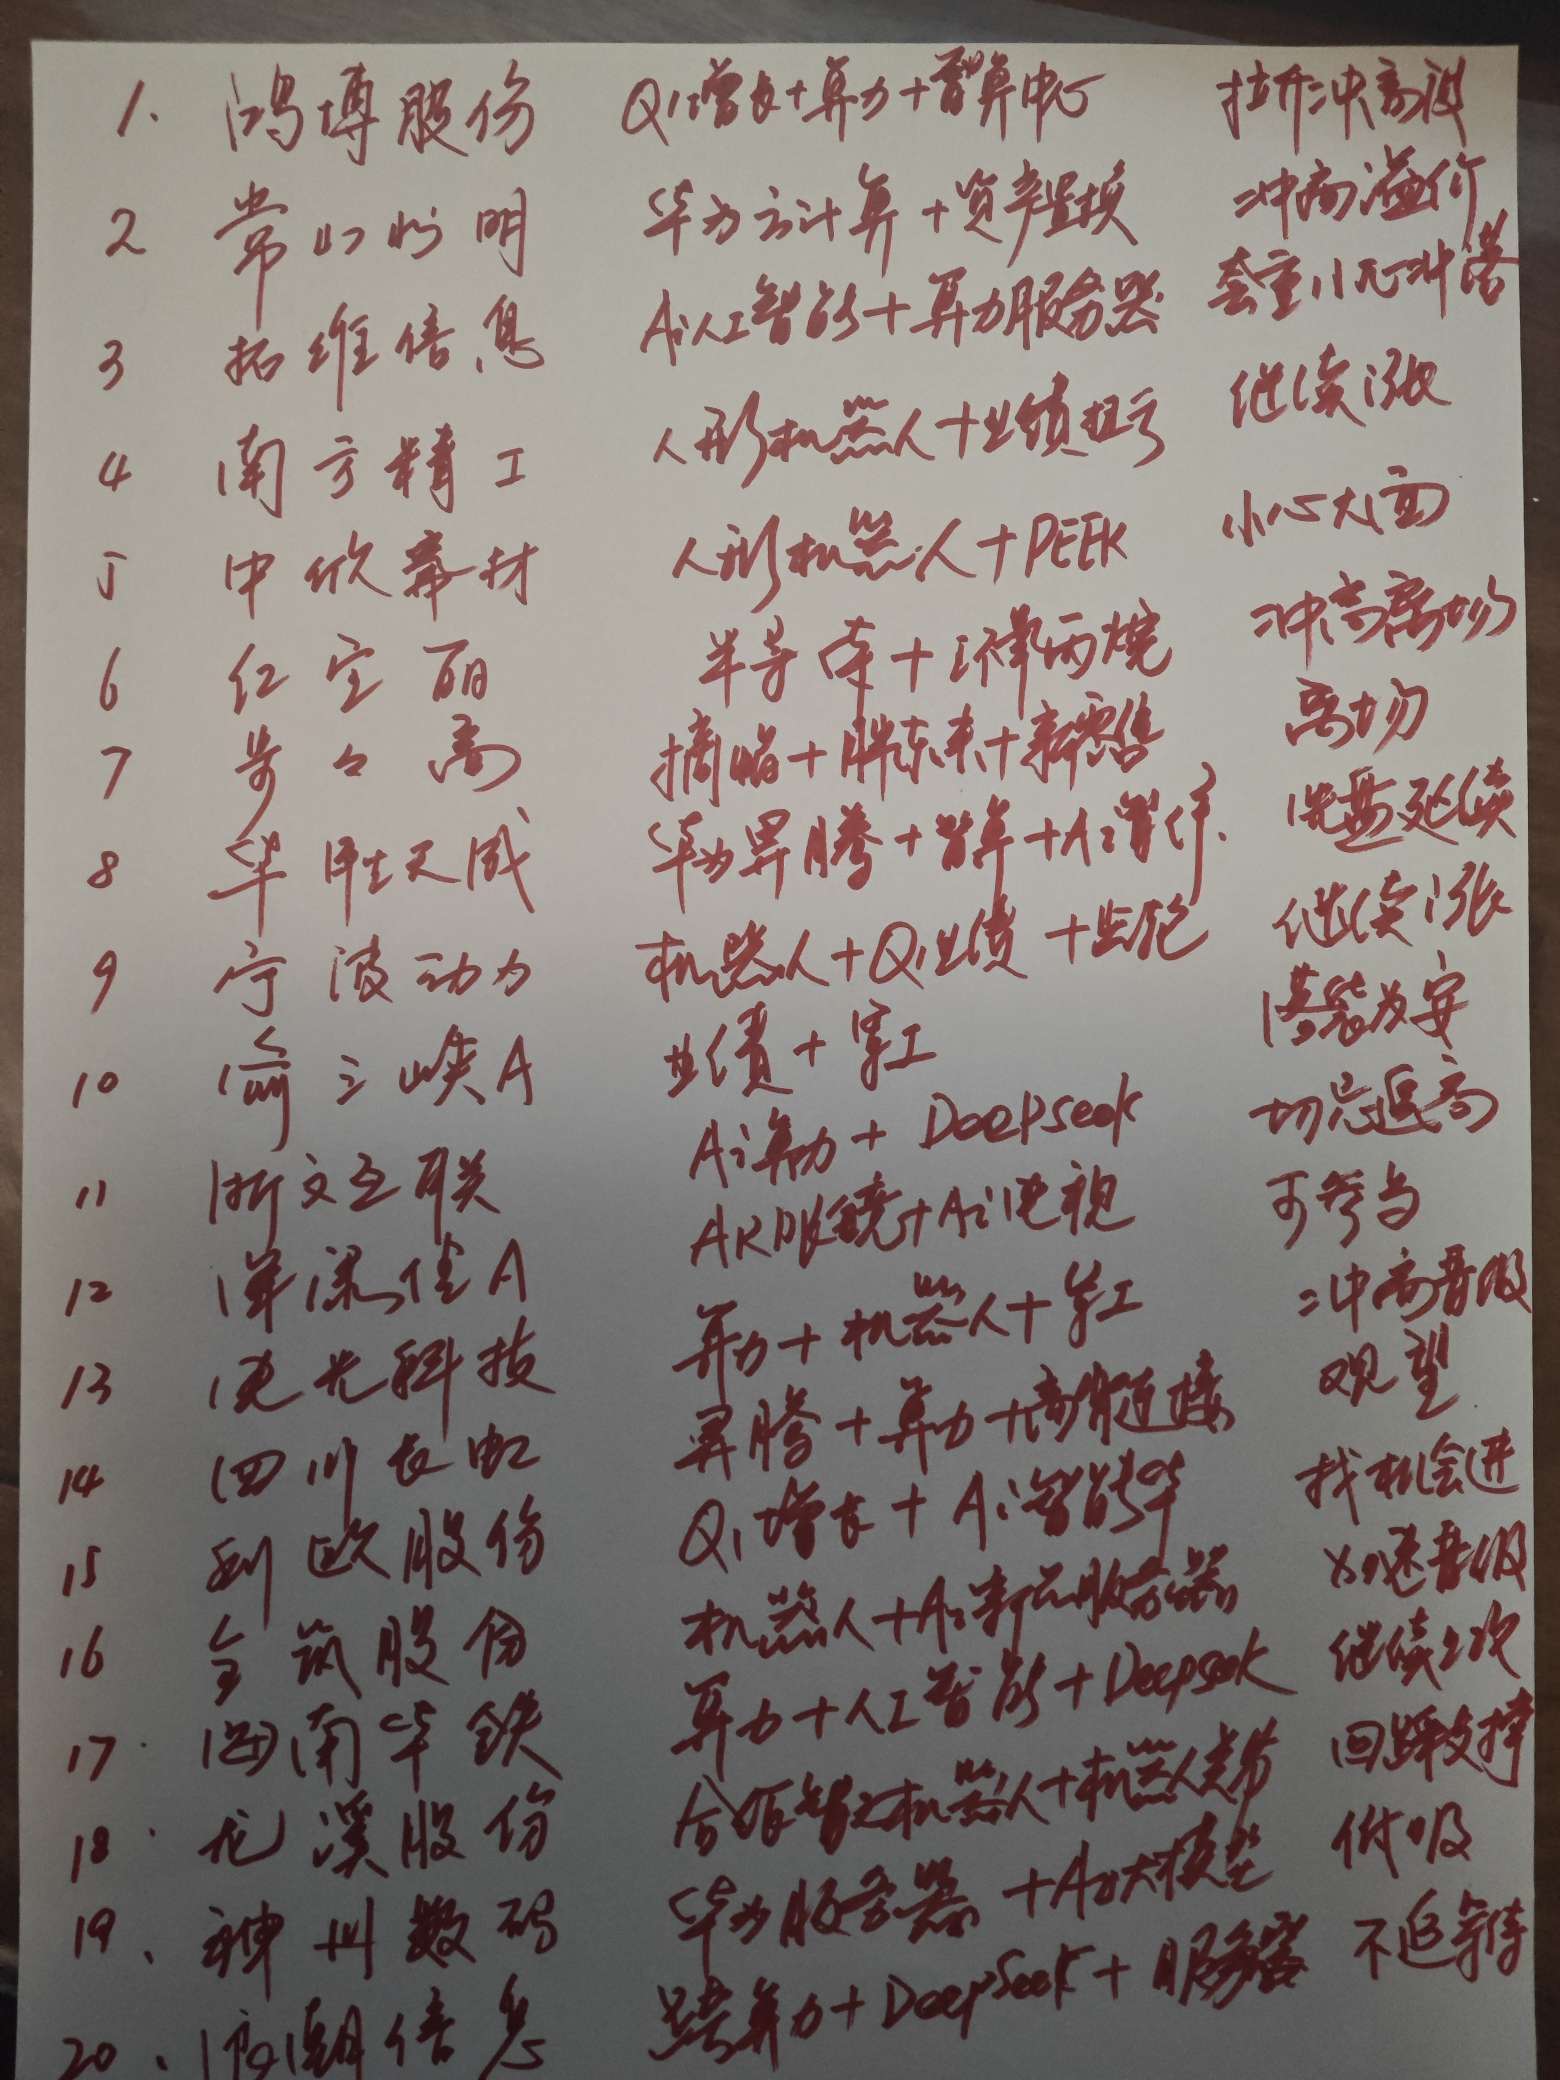 1. 鸿博股份 Q1增长+算力+智算中心 拉升冲高没
2 常山北明 华为云计算+资产置换 冲高溢价
3 拓维信息 Ai人工智能+算力服务器 套重小心冲落
4 南方精工 人形机器人+业绩扭亏 继续涨
5 中欣氟材 人形机器人+PEEK 小心大面
6 红宝丽 半导体+环氧丙烷 冲高离场
7 步步高 摘帽+胖东来+新零售 离场
8 华胜天成 华为昇腾+智算+Ai 洗盘延续
9 宁波动力 机器人+Q1业绩+齿轮 继续涨
10 渝三峡A 业绩+军工 落袋为安
11 浙文互联 Ai算力+Deepseek 切忌追高
12 深深佳A AR眼镜+Ai电视 可参与
13 电光科技 算力+机器人+军工 冲高吸
14 四川长虹 昇腾+算力+高背连接 观望
15 利欧股份 Q1增长+Ai智能 找机会进
16 全筑股份 机器人+Ai新品服务器
17 海南华铁 算力+人工智能+Deepseek 继续2次
18 龙溪股份 合作智元机器人+机器人关节 回踩支撑
19、神州数码 华为服务器+Ai大模型 低吸
20、浪潮信息 算力+DeepSeek+服务器 不追等待